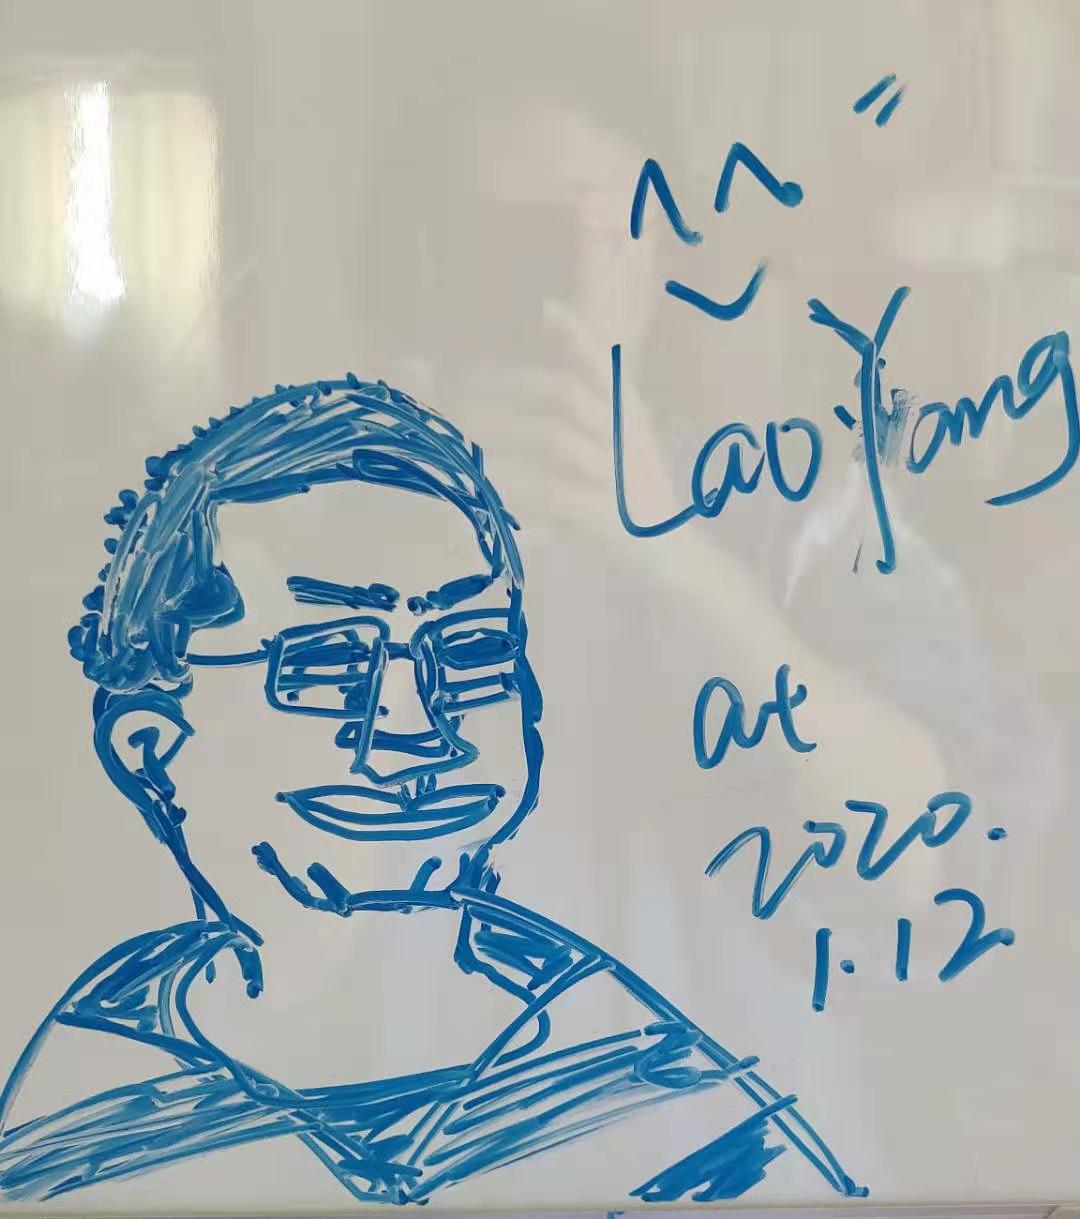 Lao Yang
at
2020.
1.12